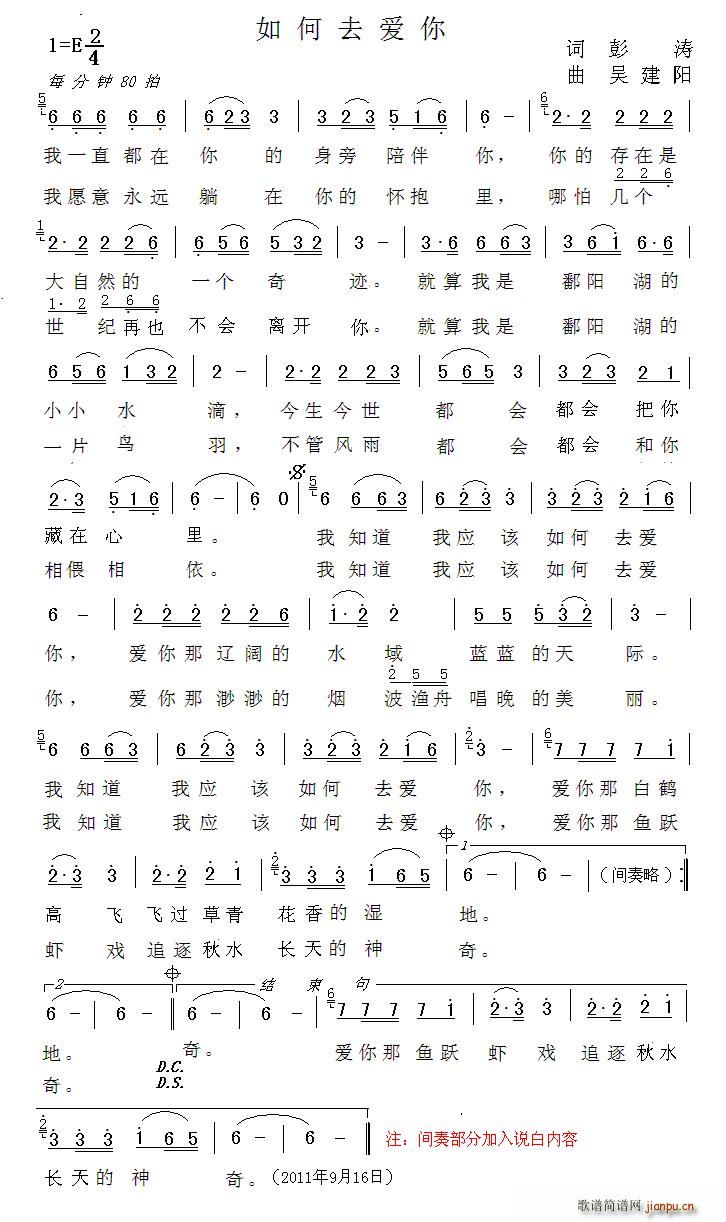 如何去爱你
1=E 2/4
词 彭 涛
每分钟80拍
曲 吴建阳
5 6 6 6 6 6 | 6 2 3 3 | 3 2 3 5 1 6 | 6 - | 6 2· 2 2 2 2 |
我一直都在 你 的 身旁 陪伴 你， 你的存在是
2 2 6
我愿意永远 躺 在 你的 怀抱 里， 哪怕 几个
1 2· 2 2 2 6 | 6 5 6 5 3 2 | 3 - | 3· 6 6 6 3 | 3 6 1 6· 6 |
大自然的 一个 奇 迹。 就算我是 鄱阳 湖的
1· 2 2 6 6
世 纪再也 不会 离开 你。 就算我是 鄱阳 湖的
6 5 6 1 3 2 | 2 - | 2· 2 2 2 3 | 5 6 5 3 | 3 2 3 2 1 |
小小 水 滴， 今生今世 都 会 都会 把你
一片 鸟 羽， 不管风雨 都 会 都会 和你
2· 3 5 1 6 | 6 - | 6 0 | 5 6 6 6 3 | 6 2 3 3 | 3 2 3 2 1 6 |
藏在 心 里。 我 知道 我应 该 如何 去爱
相偎 相 依。 我 知道 我应 该 如何 去爱
6 - | 2 2 2 2 2 6 | 1· 2 2 | 5 5 5 3 2 | 3 - |
你， 爱你那辽阔的 水 域 蓝蓝的天 际。
2 5 5
你， 爱你那渺渺的 烟 波渔舟 唱晚的美 丽。
5 6 6 6 3 | 6 2 3 3 | 3 2 3 2 1 6 | 2 3 - | 6 7 7 7 7 1 |
我 知道 我应 该 如何 去爱 你， 爱你那 白鹤
我 知道 我应 该 如何 去爱 你， 爱你那 鱼跃
1
2· 3 3 | 2· 2 2 1 | 2 3 3 3 1 6 5 | 6 - | 6 - | （间奏略） :‖
高 飞 飞过 草青 花香的 湿 地。
虾 戏 追逐 秋水 长天的 神 奇。
2 结 束 句
6 - | 6 - ‖ 6 - | 6 - | 6 7 7 7 7 1 | 2· 3 3 | 2· 2 2 1 |
地。 奇。 爱你那 鱼跃 虾 戏 追逐 秋水
奇。 D.C. D.S.
2 3 3 3 1 6 5 | 6 - | 6 - ‖ 注：间奏部分加入说白内容
长天的 神 奇。（2011年9月16日）
歌谱简谱网
jianpu.cn